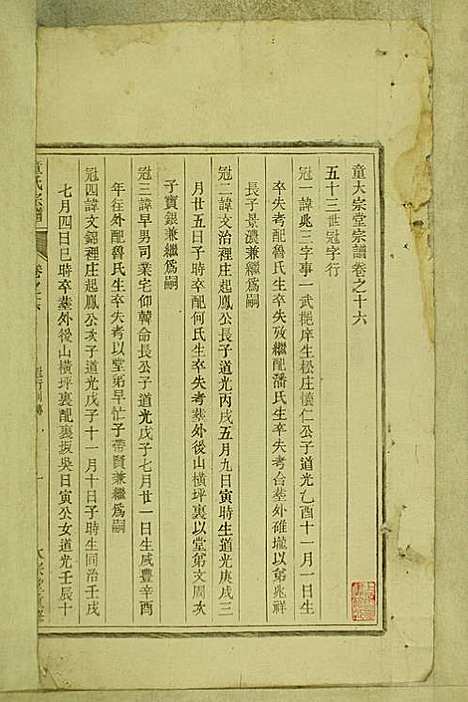 童大宗堂宗譜卷之十六
五十三世冠字行
冠一諱兆三字事一武庠生松庄懷仁公子道光乙酉十一月一日生
卒失考配魯氏生卒失攷繼配潘氏生卒失考合塟外碓壠以弟兆祥
長子景濃兼繼爲嗣
冠二諱文治裡庄起鳳公長子道光丙戌五月九日寅時生道光庚戌三
月廿五日子時卒配何氏生卒失考塟外後山橫坪裏以堂弟文周次
子寶銀兼繼爲嗣
冠三諱早男司業宅仰韓命長公子道光戊子七月廿一日生咸豐辛酉
年往外配魯氏生卒失考以堂弟早忙子帶賢兼繼爲嗣
冠四諱文錦裡庄起鳳公次子道光戊子十一月十日子時生同治壬戌
七月四日巳時卒塟外後山橫坪裏配裏坂吳日寅公女道光壬辰十
童氏宗譜
卷之十六